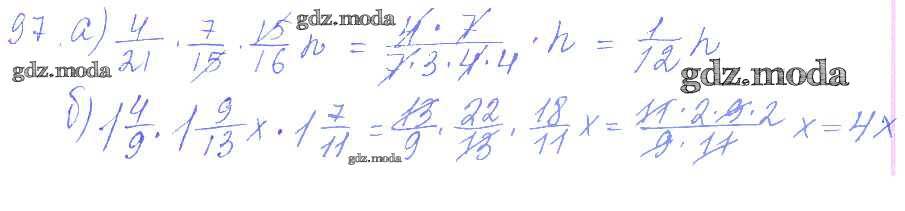 97. а) 4/21 · 7/15 · 15/16 n = 4 · 7 / 7 · 3 · 4 · 4 · n = 1/12 n
gdz.moda
gdz.moda
gdz.moda
б) 1 4/9 · 1 9/13 x · 1 7/11 = 13/9 · 22/13 · 18/11 x = 11 · 2 · 9 · 2 / 9 · 11 x = 4x
gdz.moda